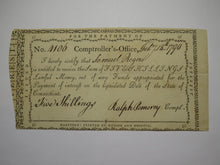 FOR THE PAYMENT OF
No. 4106 Comptroller's-Office, 1790
I hereby certify that Samuel Rogers
is entitled to receive the Sum of FIVE SHILLINGS
Lawful Money, out of any Funds appropriated for the
Payment of interest on the liquidated Debt of the State of
Connecticut.
Five Shillings Ralph Pomeroy Compt.
HARTFORD: PRINTED BY HUDSON AND GOODWIN.